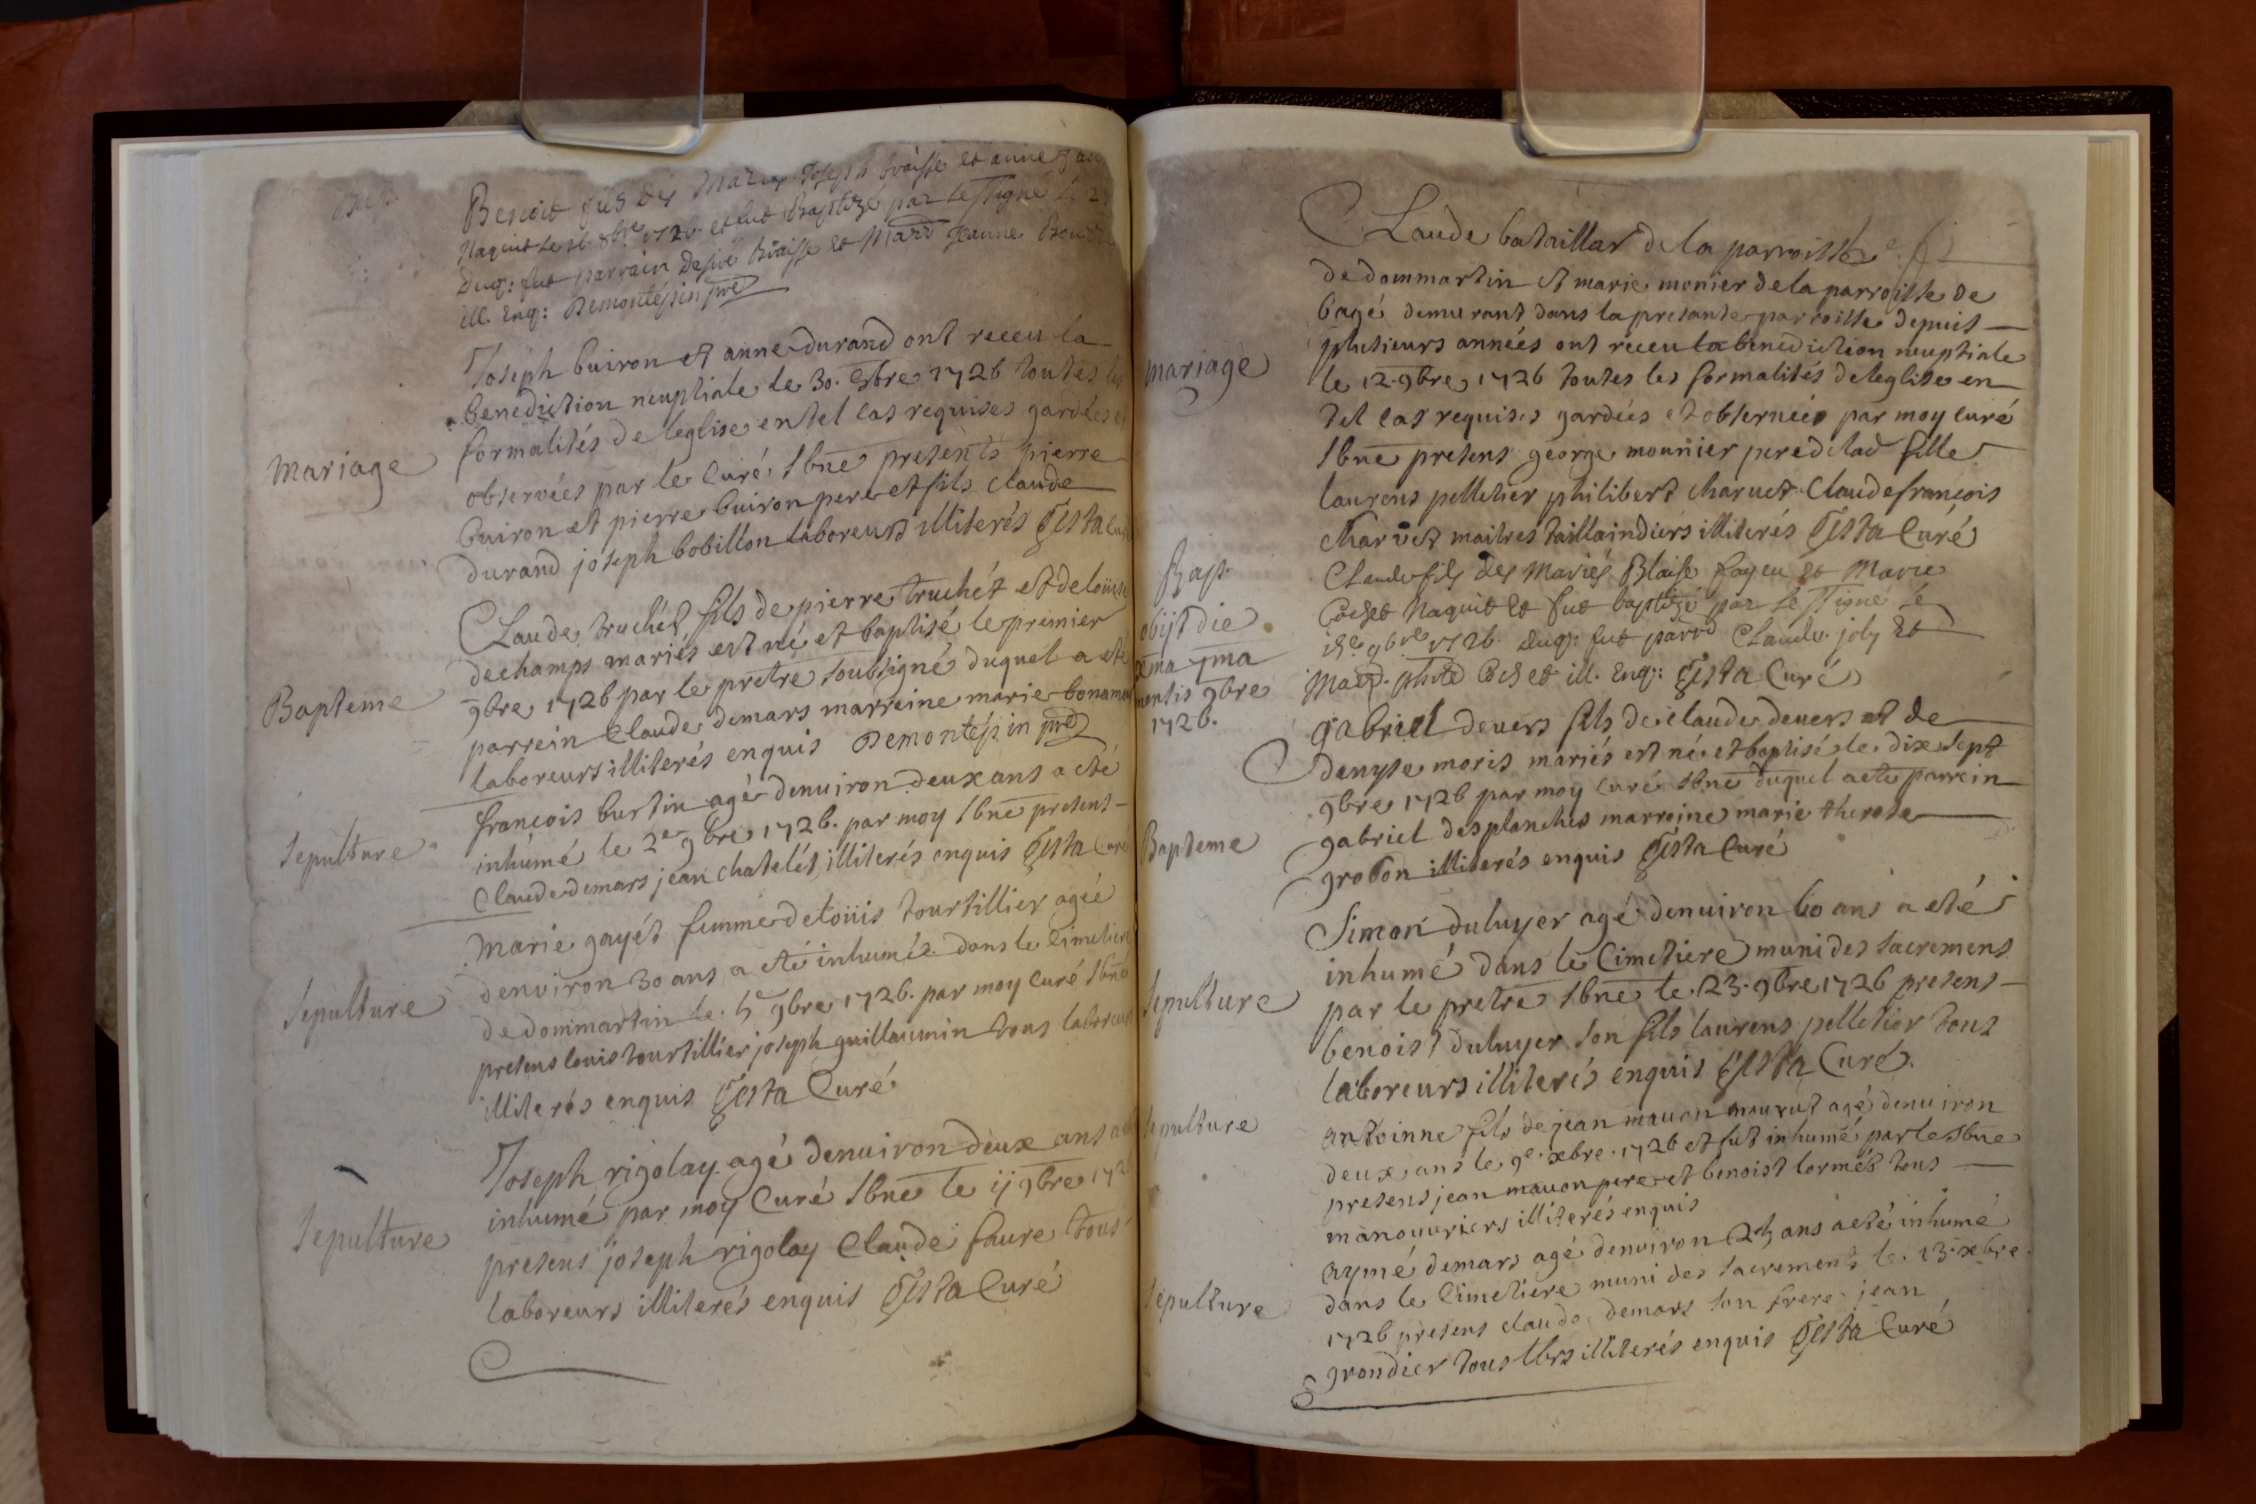 Bap
Benoit fils des Mariez Joseph braisse et anne
Naquit le 26 8bre 1726 et fut Baptizé par le ssigné le
Duq: fut parrain Desiré Braisse et Marr Jeanne
ill. Enq: Demontépin pre
Mariage
Joseph buiron et anne durand ont receu la
benediction neuptiale le 30. 8bre 1726 toutes les
formalités de leglise en tel cas requises gardées et
observées par le Curé sbne presents pierre
buiron et pierre buiron pere et fils claude
durand joseph bobillon laboreurs illiterés Gista Curé
Bapteme
Claude truchét fils de pierre truchét et de louise
dechamps mariés est né et baptisé le premier
9bre 1726 par le pretre soubsigné duquel a eté
parrein Claude demars marreine marie
laboreurs illiterés enquis Demontépin pre
Sepulture
françois burtin agé denuiron deux ans a eté
inhumé le 2e 9bre 1726. par moy sbne presens
Claude demars jean chatelét illiterés enquis Gista Curé
Sepulture
Marie gayét femme de loüis tourtillier agée
denviron 30 ans a eté inhumée dans le Cimetiere
de dommartin le. 5e 9bre 1726. par moy curé sbne
presens louis tourtillier joseph guillaumin tous laboreurs
illiterés enquis Gista Curé
Sepulture
Joseph rigolay agé denuiron deux ans a eté
inhumé par moy Curé sbne le ij 9bre 1726
presens joseph rigolay Claude faure tous
laboreurs illiterés enquis Gista Curé
Mariage
Claude bataillar de la parroisse
de dommartin et marie monier de la parroisse de
bagé demurant dans la presante parroisse depuis
plusieurs années ont receu la benediction neuptiale
le 12. 9bre 1726 toutes les formalités de leglise en
tel cas requises gardées et obseruées par moy curé
sbne presens george mounier pere de lad fille
laurens pelletier philibert charuet Claude françois
charvet maitres taillaindiers illiterés Gista Curé
Bap.
Claude fils des Mariés Blaise fayeu et Marie
Cochet Naquit et fut baptizé par le ssigné le
9bre 1726. duq: fut parrd Claude joly et
Mard. phite Cochet ill. Enq: Gista Curé
obijt die
ma
mensis 9bre
1726.
Bapteme
gabriel deuers fils de claude deuers et de
denyse moris mariés est né et baptisé le dix sept
9bre 1726 par moy curé sbne duquel a ete parrein
gabriel desplanches marreine marie therese
grobon illiterés enquis Gista Curé
Sepulture
Simon duluyer agé denuiron 60 ans a eté
inhumé dans le Cimetiere muni des sacremens
par le pretre sbne le. 23. 9bre 1726 presens
benoist duluyer son fils laurens pelletier tous
laboreurs illiterés enquis Gista Curé.
Sepulture
Antoinne fils de jean mauon mourut agé denuiron
deux ans le 9e. xbre. 1726 et fut inhumé par le sbne
presens jean mauon pere et benoist lormét tous
manouuriers illiterés enquis
Sepulture
Aymé demars agé denuiron 25 ans a eté inhumé
dans le Cimetiere muni des sacremens le. 13. xbre
1726 presens claude demars son frere jean
grondier tous lbrs illiterés enquis Gista Curé